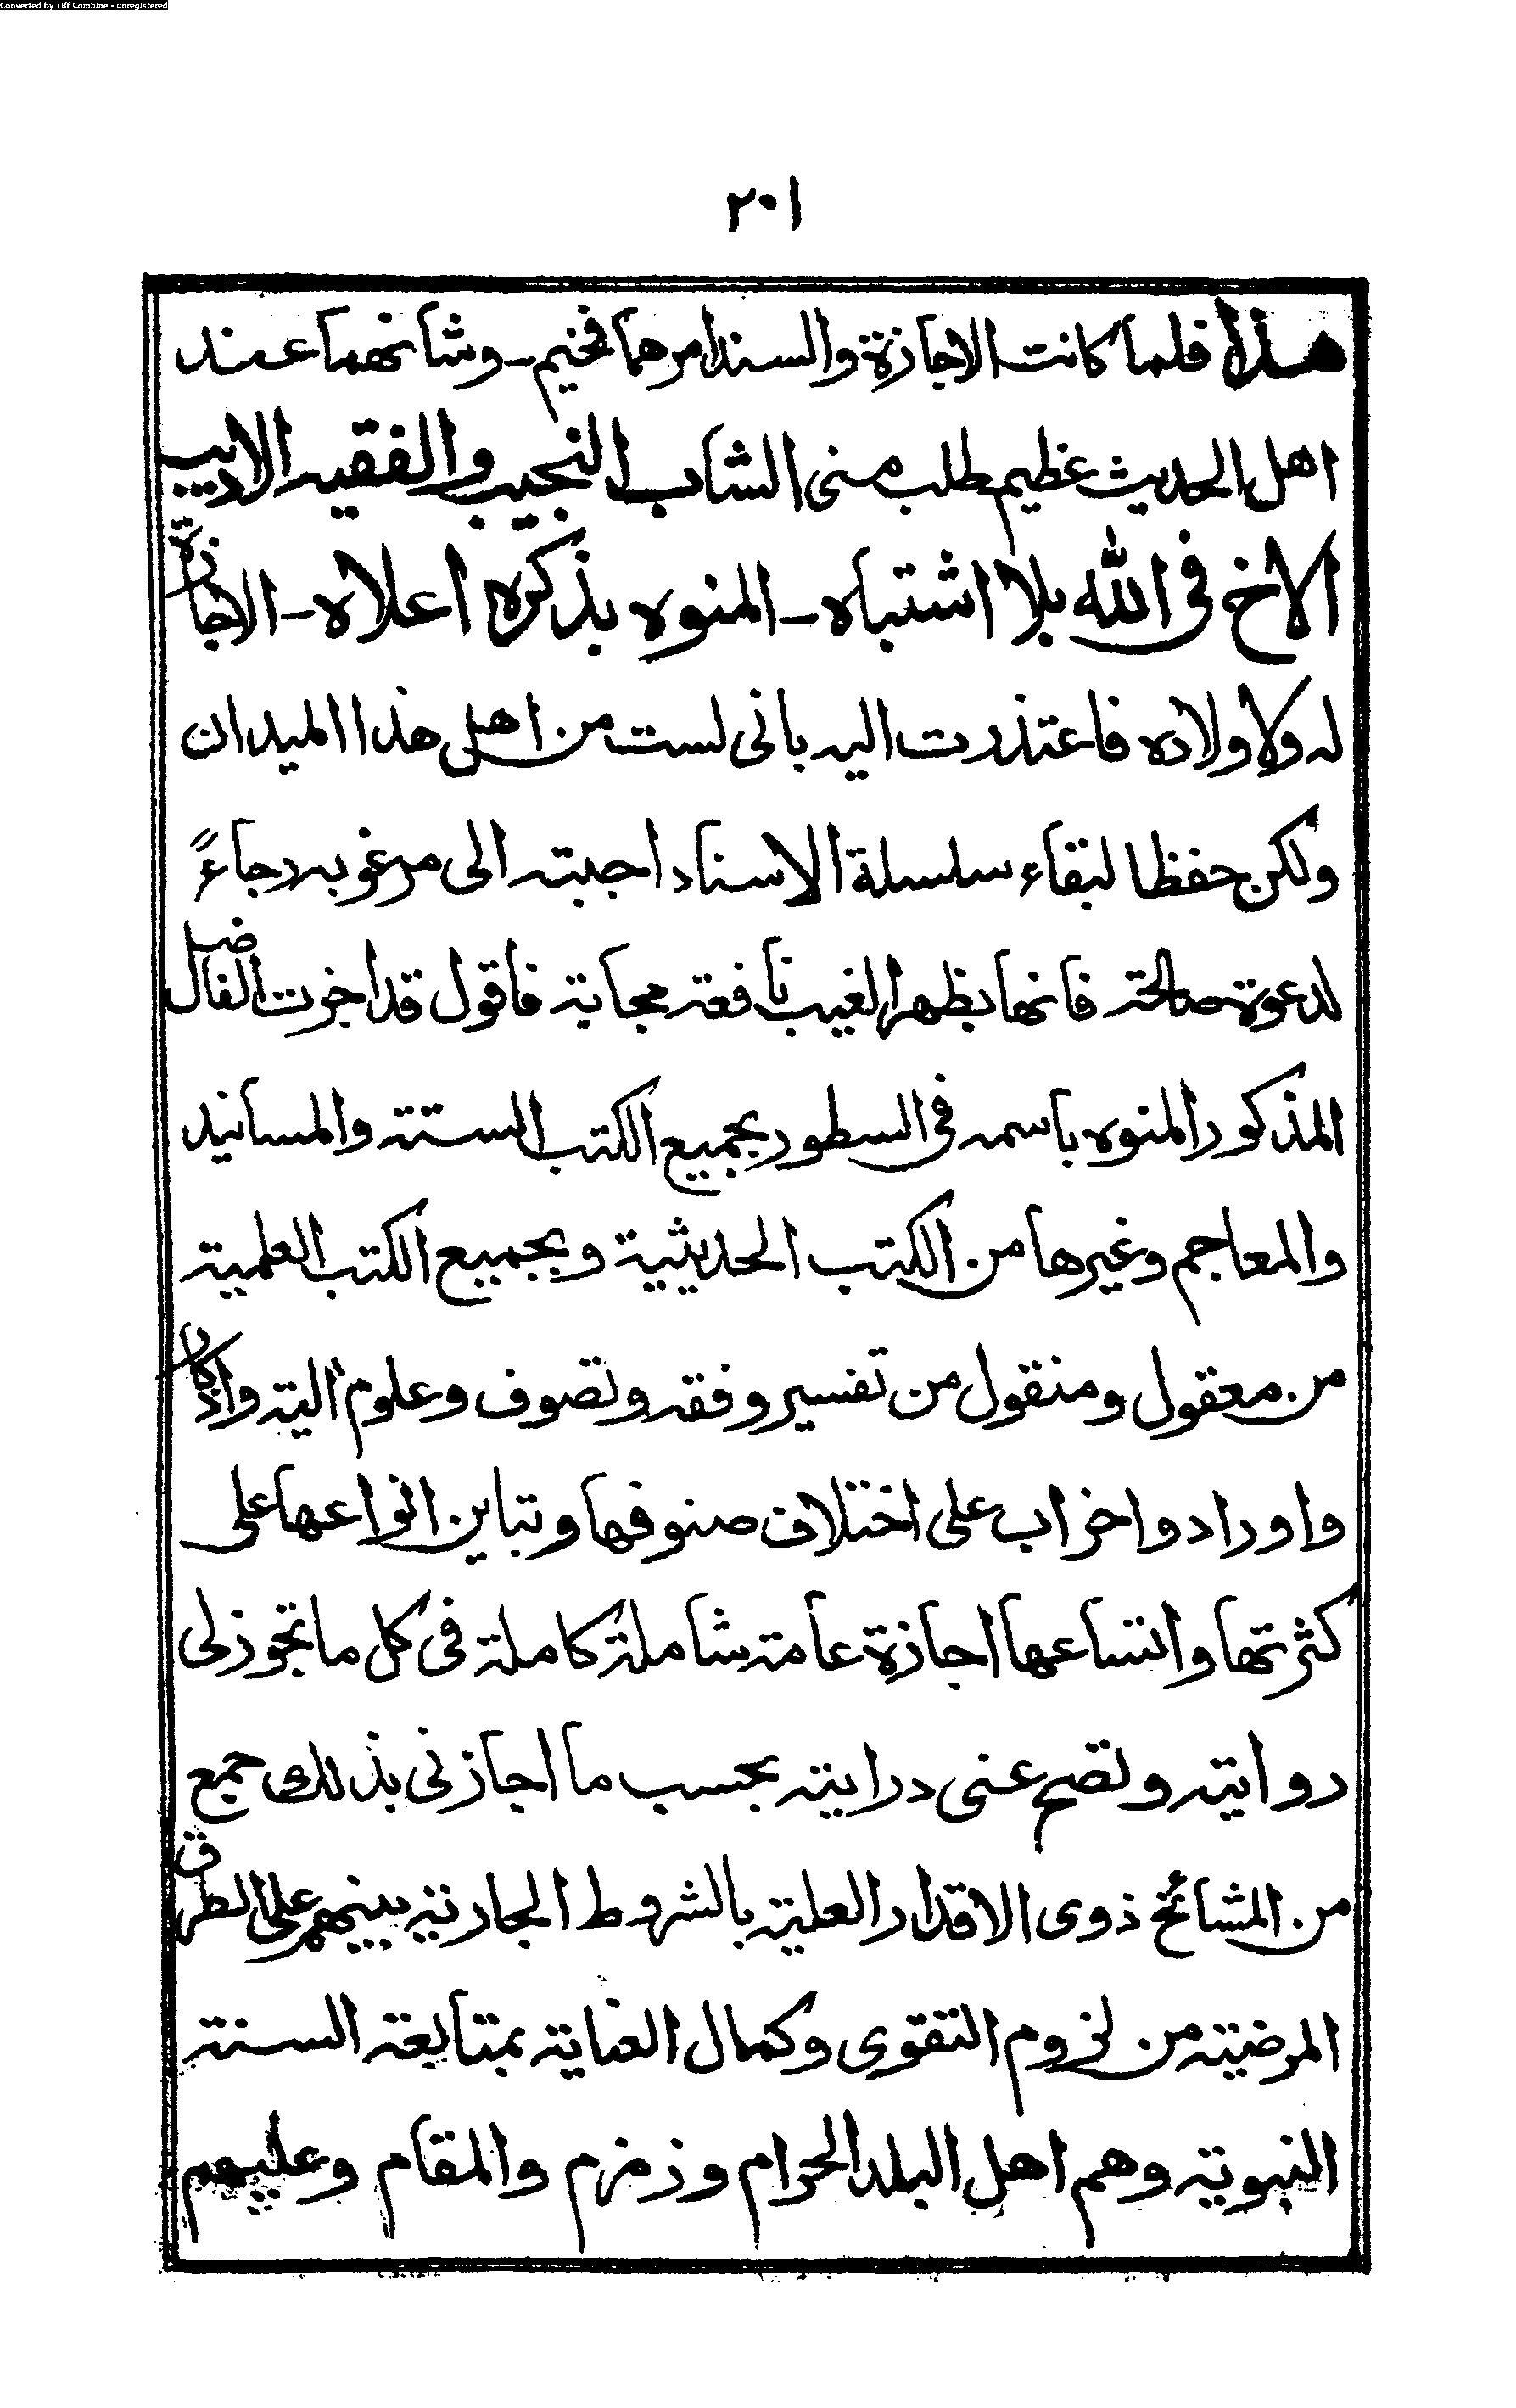 Converted by Tiff Combine - unregistered
٢٠١
هذا فلما كانت الاجازة والسند امرهما فخيم ـ وشانهما عند
اهل الحديث عظيم طلب منى الشاب النجيب والفقيه الاديب
الاخ فى الله بلا اشتباه ـ المنوه بذكره اعلاه ـ الاجازة
له ولاولاده فاعتذرت اليه بانى لست من اهل هذا الميدان
ولكن حفظا لبقاء سلسلة الاسناد اجبته الى مرغوبه رجاءً
لدعوة صالحة فانها بظهر الغيب نافعة مجابة فاقول قد اجزت الفاضل
المذكور المنوه باسمه فى السطور بجميع الكتب الستة والمسانيد
والمعاجم وغيرها من الكتب الحديثية وبجميع الكتب العلمية
من معقول ومنقول من تفسير وفقه وتصوف وعلوم الية واذكار
واوراد واحزاب على اختلاف صنوفها وتباين انواعها على
كثرتها واتساعها اجازة عامة شاملة كاملة فى كل ما تجوز لى
روايته وتصح عنى درايته بحسب ما اجازنى بذلك جمع
من المشائخ ذوى الاقدار العلية بالشروط الجارية بينهم على الطرق
المرضية من لزوم التقوى وكمال العناية بمتابعة السنة
النبوية وهم اهل البلد الحرام وزمزم والمقام وعليهم